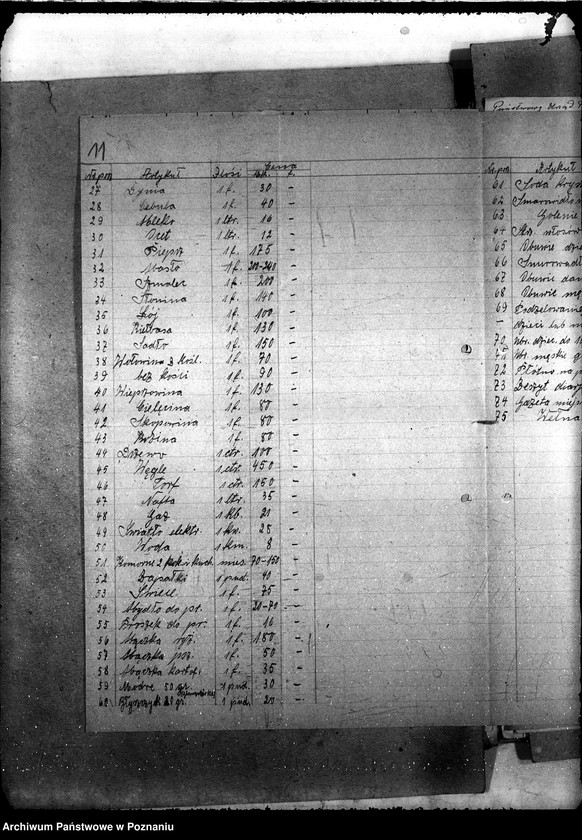 11
Nr. poz Artykuł Ilość Cena
27 Dynia 1 f. 30 -
28 Cebula 1 f. 40 -
29 Mleko 1 ltr. 16 -
30 Ocet 1 ltr. 12 -
31 Pieprz 1 f. 175 -
32 Masło 1 f. 200-240 -
33 Szmalec 1 f. 200 -
34 Słonina 1 f. 140 -
35 Łój 1 f. 100 -
36 Kiełbasa 1 f. 130 -
37 Sadło 1 f. 150 -
38 Wołowina z kość. 1 f. 70 -
39 bez kości 1 f. 90 -
40 Wieprzowina 1 f. 130 -
41 Cielęcina 1 f. 80 -
42 Skopowina 1 f. 80 -
43 1 f. 80 -
44 Drzewo 1 ctr. 100 -
45 Węgle 1 ctr. 450 -
46 Torf 1 ctr. 150 -
47 Nafta 1 ltr. 35 -
48 Gaz 1 kb. 21 -
49 Światło elektr. 1 kw. 28 -
50 Woda 1 km. 8 -
51 Komorne 2 pok. i kuch. mies. 70-150 -
52 Zapałki 1 pud. 40 -
53 Świece 1 f. 75 -
54 Mydło do pr. 1 f. 20-70 -
55 Proszek do pr. 1 f. 16 -
56 Mączka ryż. 1 f. 180 -
57 Mączka psz. 1 f. 50 -
58 Mączka kartof. 1 f. 35 -
59 50 gr. 1 pud. 30 -
60 gr. 1 pud. 20 -
Państwowy Urząd
Nr. poz Artykuł
61 Soda krys
62 Smarowidło
63 Golenie
64 Strz. włosów
65 Obuwie
66 Smarowadł
67 Obuwie dam
68 Obuwie mę
69 Podzelowanie
- dzieci lub
70 Ubr. dziec. do
71 Ubr. męskie
72 Płótno na
73 Zeszyt
74 Gazeta miejs
75 Wełna
Archiwum Państwowe w Poznaniu